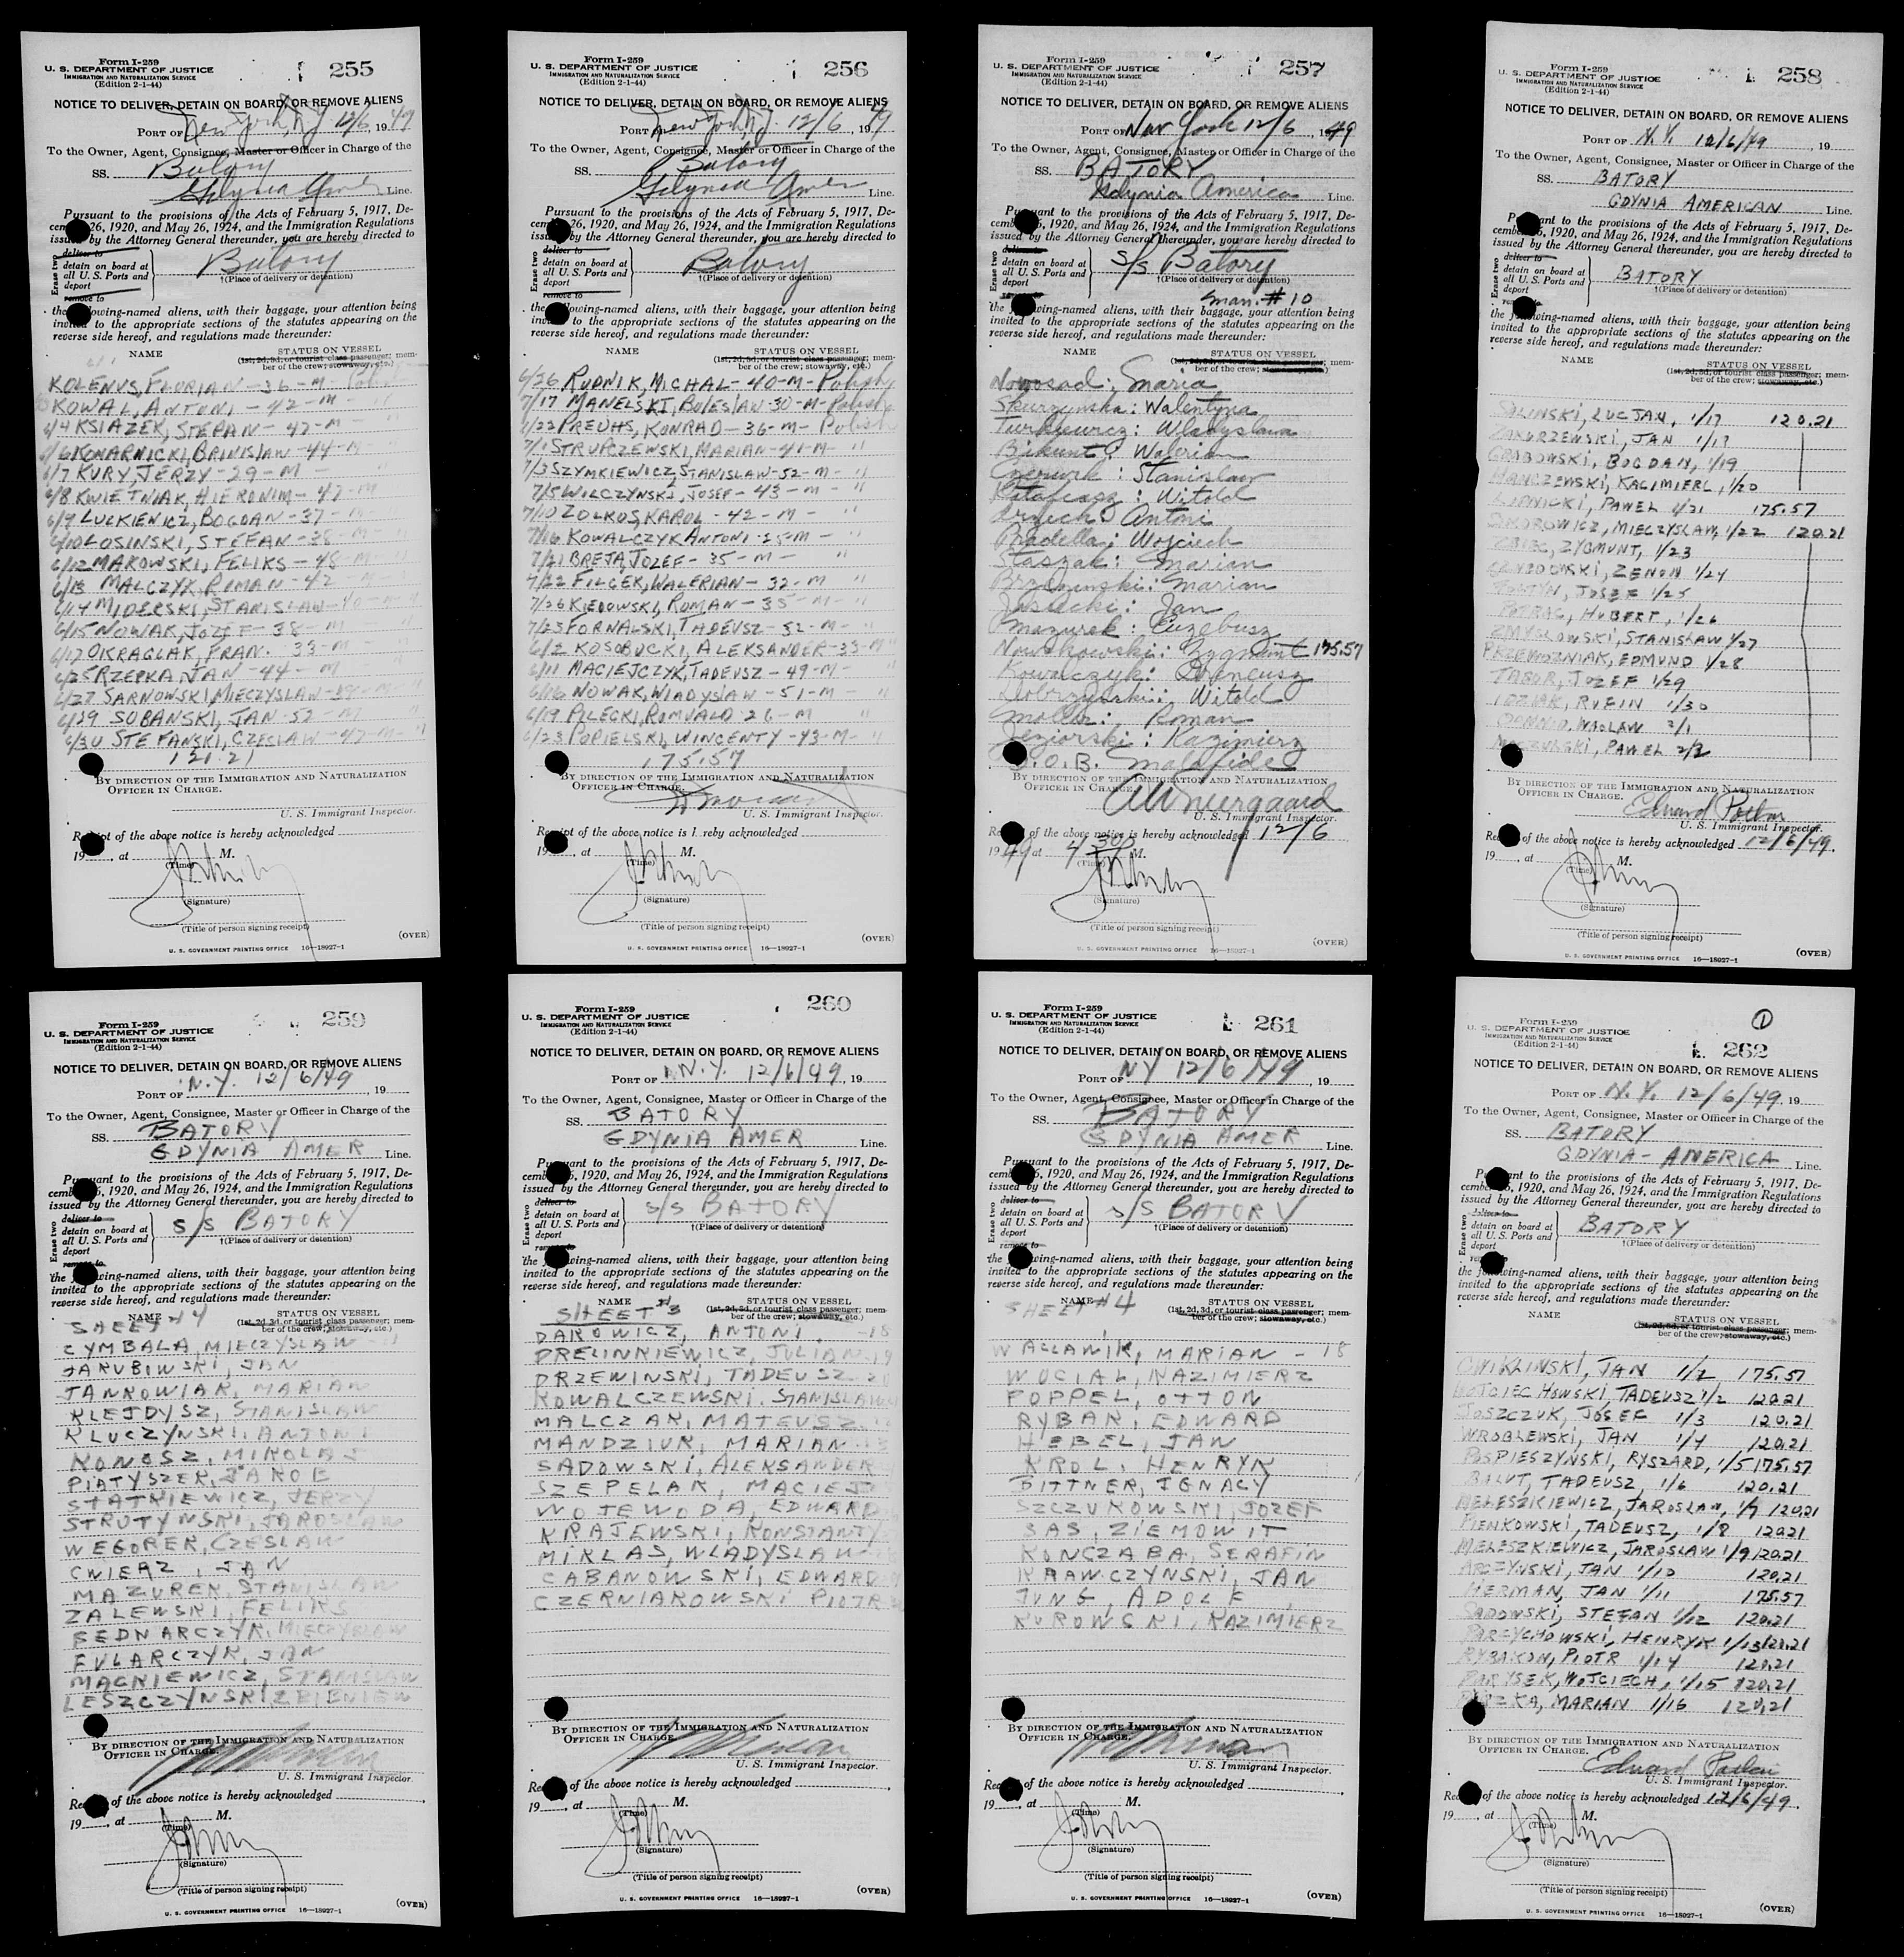 Form I-259
U. S. DEPARTMENT OF JUSTICE
IMMIGRATION AND NATURALIZATION SERVICE
(Edition 2-1-44)
255
NOTICE TO DELIVER, DETAIN ON BOARD, OR REMOVE ALIENS
PORT OF New York, NY 12/6, 1949
To the Owner, Agent, Consignee, Master or Officer in Charge of the
SS. Batory
Gdynia Amer Line.
Pursuant to the provisions of the Acts of February 5, 1917, De-
cem 26, 1920, and May 26, 1924, and the Immigration Regulations
issu by the Attorney General thereunder, you are hereby directed to
Erase two
deliver to
detain on board at
all U. S. Ports and
deport
remove to
Batory
†(Place of delivery or detention)
the owing-named aliens, with their baggage, your attention being
invited to the appropriate sections of the statutes appearing on the
reverse side hereof, and regulations made thereunder:
NAME
STATUS ON VESSEL
(1st, 2d, 3d, or tourist class passenger; mem-
ber of the crew; stowaway, etc.)
KOLENUS, FLORIAN - 36 - M -
KOWAL, ANTONI - 42 - M -
6/4 KSIAZEK, STEPAN - 47 - M -
6/6 KONARNICKI, BRINISLAW - 44 - M -
6/7 KURY, JERZY - 29 - M - "
6/8 KWIETNIAK, HIERONIM - 47 - M
6/9 LUCKIEWICZ, BOGDAN - 37 - M
6/10 LOSINSKI, STEFAN - 38 - M
6/12 MAKOWSKI, FELIKS - 48 - M
6/13 MALCZYK, ROMAN - 42 - M
6/14 MIDERSKI, STANISLAW - 40 - M
6/15 NOWAK, JOZEF - 38 - M
6/17 OKRAGLAK, FRAN. 33 - M
6/25 RZEPKA, JAN - 44 - M
6/27 SARNOWSKI, MIECZYSLAW - M
6/29 SOBANSKI, JAN - 52 - M
6/30 STEFANSKI, CZESLAW - 47 - M - "
121.21
BY DIRECTION OF THE IMMIGRATION AND NATURALIZATION
OFFICER IN CHARGE.
U. S. Immigrant Inspector.
Receipt of the above notice is hereby acknowledged
19, at M.
(Time)
(Signature)
(Title of person signing receipt)
(OVER)
U. S. GOVERNMENT PRINTING OFFICE 16—18927-1
Form I-259
U. S. DEPARTMENT OF JUSTICE
IMMIGRATION AND NATURALIZATION SERVICE
(Edition 2-1-44)
256
NOTICE TO DELIVER, DETAIN ON BOARD, OR REMOVE ALIENS
PORT New York, NY. 12/6, 1949
To the Owner, Agent, Consignee, Master or Officer in Charge of the
SS. Batory
Gdynia Amer Line.
Pursuant to the provisions of the Acts of February 5, 1917, De-
cem 26, 1920, and May 26, 1924, and the Immigration Regulations
iss by the Attorney General thereunder, you are hereby directed to
Erase two
deliver to
detain on board at
all U. S. Ports and
deport
remove to
Batory
†(Place of delivery or detention)
the owing-named aliens, with their baggage, your attention being
invited to the appropriate sections of the statutes appearing on the
reverse side hereof, and regulations made thereunder:
NAME
STATUS ON VESSEL
(1st, 2d, 3d, or tourist class passenger; mem-
ber of the crew; stowaway, etc.)
6/26 RUDNIK, MICHAL - 40 - M - Polish
7/17 MANELSKI, BOLESLAW - 30 - M - Polish
PREUHS, KONRAD - 36 - M - Polish
7/1 STRUPCZEWSKI, MARIAN - 41 - M - "
7/3 SZYMKIEWICZ, STANISLAW - 52 - M - "
7/5 WILCZYNSKI, JOSEF - 43 - M - "
7/10 ZOLKOS, KAROL - 42 - M - "
7/16 KOWALCZYK ANTONI - 25 - M - "
7/21 BREJA, JOZEF - 35 - M - "
7/22 FILGEK, WALERIAN - 32 - M "
7/26 KIEDOWSKI, ROMAN - 35 - M - "
7/25 FORNALSKI, TADEUSZ - 32 - M - "
6/2 KOSOBUCKI, ALEKSANDER - 33 - M "
6/11 MACIEJCZYK, TADEUSZ - 49 - M - "
6/16 NOWAK, WLADYSLAW - 51 - M - "
6/19 PILECKI, ROMUALD 26 - M "
6/23 POPIELSKI, WINCENTY - 43 - M - "
175.57
BY DIRECTION OF THE IMMIGRATION AND NATURALIZATION
OFFICER IN CHARGE.
U. S. Immigrant Inspector.
Receipt of the above notice is h reby acknowledged
19, at M.
(Time)
(Signature)
(Title of person signing receipt)
(OVER)
U. S. GOVERNMENT PRINTING OFFICE 16—18927-1
Form I-259
U. S. DEPARTMENT OF JUSTICE
IMMIGRATION AND NATURALIZATION SERVICE
(Edition 2-1-44)
257
NOTICE TO DELIVER, DETAIN ON BOARD, OR REMOVE ALIENS
PORT OF New York 12/6, 1949
To the Owner, Agent, Consignee, Master or Officer in Charge of the
SS. BATORY
Gdynia America Line.
Pursuant to the provisions of the Acts of February 5, 1917, De-
cem 6, 1920, and May 26, 1924, and the Immigration Regulations
issued by the Attorney General thereunder, you are hereby directed to
Erase two
deliver to
detain on board at
all U. S. Ports and
deport
S/S Batory
†(Place of delivery or detention)
man. # 10
the wing-named aliens, with their baggage, your attention being
invited to the appropriate sections of the statutes appearing on the
reverse side hereof, and regulations made thereunder:
NAME
STATUS ON VESSEL
(1st, 2d, 3d, or tourist class passenger; mem-
ber of the crew; stowaway, etc.)
Nowosad: Maria
Skurzynska: Walentyna
Turkiewicz: Wladyslawa
Bikunt: Walerian
Czerwik: Stanislaw
Katafiasz: Witold
Antoni
Pradella: Wojciech
Staszak: Marian
Brzezinski: Marian
Jasiecki: Jan
Mazurek: Euzebusz
Nowakowski: Zygmunt 175.57
Kowalczyk: Ireneusz
Dobrzynski: Witold
Moller: Roman
Jeziorski: Kazimierz
O. B. Malafide
BY DIRECTION OF THE IMMIGRATION AND NATURALIZATION
OFFICER IN CHARGE.
U. S. Immigrant Inspector.
Re of the above notice is hereby acknowledged 12/6
1949 at 4 30 M.
(Time)
(Signature)
(Title of person signing receipt)
(OVER)
U. S. GOVERNMENT PRINTING OFFICE 16—18927-1
Form I-259
U. S. DEPARTMENT OF JUSTICE
IMMIGRATION AND NATURALIZATION SERVICE
(Edition 2-1-44)
258
NOTICE TO DELIVER, DETAIN ON BOARD, OR REMOVE ALIENS
PORT OF N.Y. 12/6/49, 19
To the Owner, Agent, Consignee, Master or Officer in Charge of the
SS. BATORY
GDYNIA AMERICAN Line.
P ant to the provisions of the Acts of February 5, 1917, De-
cembe 5, 1920, and May 26, 1924, and the Immigration Regulations
issued by the Attorney General thereunder, you are hereby directed to
Erase two
deliver to
detain on board at
all U. S. Ports and
deport
BATORY
†(Place of delivery or detention)
the f wing-named aliens, with their baggage, your attention being
invited to the appropriate sections of the statutes appearing on the
reverse side hereof, and regulations made thereunder:
NAME
STATUS ON VESSEL
(1st, 2d, 3d, or tourist class passenger; mem-
ber of the crew; stowaway, etc.)
SALINSKI, LUCJAN, 1/17 120.21
ZAKURZEWSKI, JAN 1/17
GRABOWSKI, BOGDAN, 1/19
HANCZEWSKI, KACIMIERL, 1/20
LIPNICKI, PAWEL 1/21 175.57
MIECZYSLAW, 1/22 120.21
ZYGMUNT, 1/23
ZENON 1/24
JOSEF 1/25
POTRAC, HUBERT, 1/26
ZMYSLOWSKI, STANISLAW 1/27
PRZEWOZNIAK, EDMUND 1/28
TABOR, JOZEF 1/29
1/30
WACLAW 2/1
PAWEL 2/2
BY DIRECTION OF THE IMMIGRATION AND NATURALIZATION
OFFICER IN CHARGE.
Edward
U. S. Immigrant Inspector.
Rec of the above notice is hereby acknowledged 12/6/49.
19, at M.
(Time)
(Signature)
(Title of person signing receipt)
(OVER)
U. S. GOVERNMENT PRINTING OFFICE 16—18927-1
Form I-259
U. S. DEPARTMENT OF JUSTICE
IMMIGRATION AND NATURALIZATION SERVICE
(Edition 2-1-44)
259
NOTICE TO DELIVER, DETAIN ON BOARD, OR REMOVE ALIENS
PORT OF N.Y. 12/6/49 19
To the Owner, Agent, Consignee, Master or Officer in Charge of the
SS. BATORY
GDYNIA AMER Line.
Pursuant to the provisions of the Acts of February 5, 1917, De-
cemb 5, 1920, and May 26, 1924, and the Immigration Regulations
issued by the Attorney General thereunder, you are hereby directed to
Erase two
deliver to
detain on board at
all U. S. Ports and
deport
remove to
S/S BATORY
†(Place of delivery or detention)
the wing-named aliens, with their baggage, your attention being
invited to the appropriate sections of the statutes appearing on the
reverse side hereof, and regulations made thereunder:
NAME
STATUS ON VESSEL
SHEET #4
(1st, 2d, 3d, or tourist class passenger; mem-
ber of the crew; stowaway, etc.)
CYMBALA, MIECZYSLAW
JAKUBOWSKI, JAN
JANKOWIAK, MARIAN
KLEJDYSZ, STANISLAW
KLUCZYNSKI, ANTONI
KONOSZ, MIKOLAJ
PIATYSZEK, JAKOB
STATKIEWICZ, JERZY
STRUTYNSKI, JAROSLAW
WEGOREK, CZESLAW
CWIERZ, JAN
MAZUREK, STANISLAW
ZALEWSKI, FELIKS
BEDNARCZYK, MIECZYSLAW
FULARCZYK, JAN
MACKIEWICZ, STANISLAW
LESZCZYNSKI ZBIGNIEW
BY DIRECTION OF THE IMMIGRATION AND NATURALIZATION
OFFICER IN CHARGE.
U. S. Immigrant Inspector.
Rec of the above notice is hereby acknowledged
19, at M.
(Time)
(Signature)
(Title of person signing receipt)
(OVER)
U. S. GOVERNMENT PRINTING OFFICE 16—18927-1
Form I-259
U. S. DEPARTMENT OF JUSTICE
IMMIGRATION AND NATURALIZATION SERVICE
(Edition 2-1-44)
260
NOTICE TO DELIVER, DETAIN ON BOARD, OR REMOVE ALIENS
PORT OF N.Y. 12/6/49, 19
To the Owner, Agent, Consignee, Master or Officer in Charge of the
SS. BATORY
GDYNIA AMER Line.
Pursuant to the provisions of the Acts of February 5, 1917, De-
cem 5, 1920, and May 26, 1924, and the Immigration Regulations
issued by the Attorney General thereunder, you are hereby directed to
Erase two
deliver to
detain on board at
all U. S. Ports and
deport
remove to
S/S BATORY
†(Place of delivery or detention)
the wing-named aliens, with their baggage, your attention being
invited to the appropriate sections of the statutes appearing on the
reverse side hereof, and regulations made thereunder:
NAME
STATUS ON VESSEL
SHEET #3
(1st, 2d, 3d, or tourist class passenger; mem-
ber of the crew; stowaway, etc.)
DAROWICZ, ANTONI - 18
DRELINKIEWICZ, JULIAN 19
DRZEWINSKI, TADEUSZ 20
KOWALCZEWSKI, STANISLAW
MALCZAK, MATEUSZ
MANDZIUK, MARIAN
SADOWSKI, ALEKSANDER
SZEPELAK, MACIEJ
WOJEWODA, EDWARD
KRAJEWSKI, KONSTANTY
MIKLAS, WLADYSLAW
CABANOWSKI, EDWARD
CZERNIAKOWSKI PIOTR
BY DIRECTION OF THE IMMIGRATION AND NATURALIZATION
OFFICER IN CHARGE.
U. S. Immigrant Inspector.
Rec of the above notice is hereby acknowledged
19, at M.
(Time)
(Signature)
(Title of person signing receipt)
(OVER)
U. S. GOVERNMENT PRINTING OFFICE 16—18927-1
Form I-259
U. S. DEPARTMENT OF JUSTICE
IMMIGRATION AND NATURALIZATION SERVICE
(Edition 2-1-44)
261
NOTICE TO DELIVER, DETAIN ON BOARD, OR REMOVE ALIENS
PORT OF NY 12/6/49, 19
To the Owner, Agent, Consignee, Master or Officer in Charge of the
SS. BATORY
GDYNIA AMER Line.
Pursuant to the provisions of the Acts of February 5, 1917, De-
cem 5, 1920, and May 26, 1924, and the Immigration Regulations
issued by the Attorney General thereunder, you are hereby directed to
Erase two
deliver to
detain on board at
all U. S. Ports and
deport
remove to
S/S BATORY
†(Place of delivery or detention)
the wing-named aliens, with their baggage, your attention being
invited to the appropriate sections of the statutes appearing on the
reverse side hereof, and regulations made thereunder:
NAME
STATUS ON VESSEL
SHEET #4
(1st, 2d, 3d, or tourist class passenger; mem-
ber of the crew; stowaway, etc.)
WALLANIK, MARIAN - 18
WOCIAL, KAZIMIERZ
POPPEL, OTTON
RYBAK, EDWARD
HEBEL, JAN
KROL, HENRYK
BITTNER, IGNACY
SZCZUKOWSKI, JOZEF
SAS, ZIEMOWIT
KONCZABA, SERAFIN
KRAWCZYNSKI, JAN
JUNG, ADOLF
KUROWSKI, KAZIMIERZ
BY DIRECTION OF THE IMMIGRATION AND NATURALIZATION
OFFICER IN CHARGE.
U. S. Immigrant Inspector.
Rec of the above notice is hereby acknowledged
19, at M.
(Time)
(Signature)
(Title of person signing receipt)
(OVER)
U. S. GOVERNMENT PRINTING OFFICE 16—18927-1
1
Form I-259
U. S. DEPARTMENT OF JUSTICE
IMMIGRATION AND NATURALIZATION SERVICE
(Edition 2-1-44)
262
NOTICE TO DELIVER, DETAIN ON BOARD, OR REMOVE ALIENS
PORT OF N.Y. 12/6/49, 19
To the Owner, Agent, Consignee, Master or Officer in Charge of the
SS. BATORY
GDYNIA - AMERICA Line.
P ant to the provisions of the Acts of February 5, 1917, De-
cembe 5, 1920, and May 26, 1924, and the Immigration Regulations
issued by the Attorney General thereunder, you are hereby directed to
Erase two
deliver to
detain on board at
all U. S. Ports and
deport
BATORY
†(Place of delivery or detention)
the f wing-named aliens, with their baggage, your attention being
invited to the appropriate sections of the statutes appearing on the
reverse side hereof, and regulations made thereunder:
NAME
STATUS ON VESSEL
(1st, 2d, 3d, or tourist class passenger; mem-
ber of the crew; stowaway, etc.)
CWIKLINSKI, JAN 1/2 175.57
WOJCIECHOWSKI, TADEUSZ 1/2 120.21
JOSZCZUK, JOSEF 1/3 120.21
WROBLEWSKI, JAN 1/4 120.21
POSPIESZYNSKI, RYSZARD, 1/5 175.57
BALUT, TADEUSZ, 1/6 120.21
MELESZKIEWICZ, JAROSLAW, 1/7 120.21
PIENKOWSKI, TADEUSZ, 1/8 120.21
MELESZKIEWICZ, JAROSLAW 1/9 120.21
ARCZYNSKI, JAN 1/10 120.21
HERMAN, JAN 1/11 175.57
SADOWSKI, STEFAN 1/12 120.21
PARZYCHOWSKI, HENRYK 1/13 120.21
RYBAKON, PIOTR 1/14 120.21
PARYSEK, WOJCIECH, 1/15 120.21
MARIAN 1/16 120.21
BY DIRECTION OF THE IMMIGRATION AND NATURALIZATION
OFFICER IN CHARGE.
Edward
U. S. Immigrant Inspector.
Rec of the above notice is hereby acknowledged 12/6/49.
19, at M.
(Time)
(Signature)
(Title of person signing receipt)
(OVER)
U. S. GOVERNMENT PRINTING OFFICE 16—18927-1